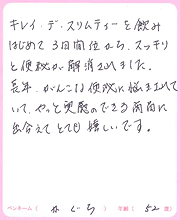 キレイ・デ・スリムティーを飲み
はじめて3日間位から、スッキリ
と便秘が解消されました。
長年、がんこな便秘に悩まされて
いて、やっと実感のできる商品に
出会えてとても嬉しいです。
ペンネーム( かぐら ) 年齢( 52 歳)